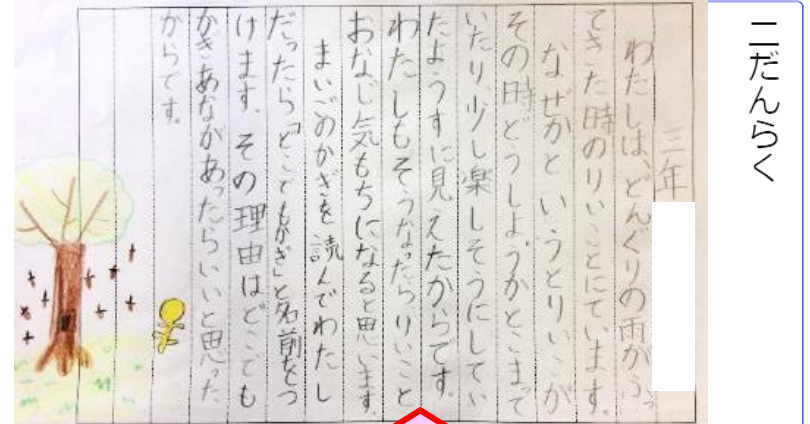 二だんらく
三年
わたしは、どんぐりの雨がふっ
てきた時のりいことにています。
なぜかというとりいこが
その時どうしようかとこまって
いたり、少し楽しそうにしてい
たようすに見えたからです。
わたしもそうなったらりいこと
おなじ気もちになると思います。
まいごのかぎを読んでわたし
だったら「どこでもかぎ」と名前をつ
けます。その理由はどこでも
かぎあながあったらいいと思った
からです。